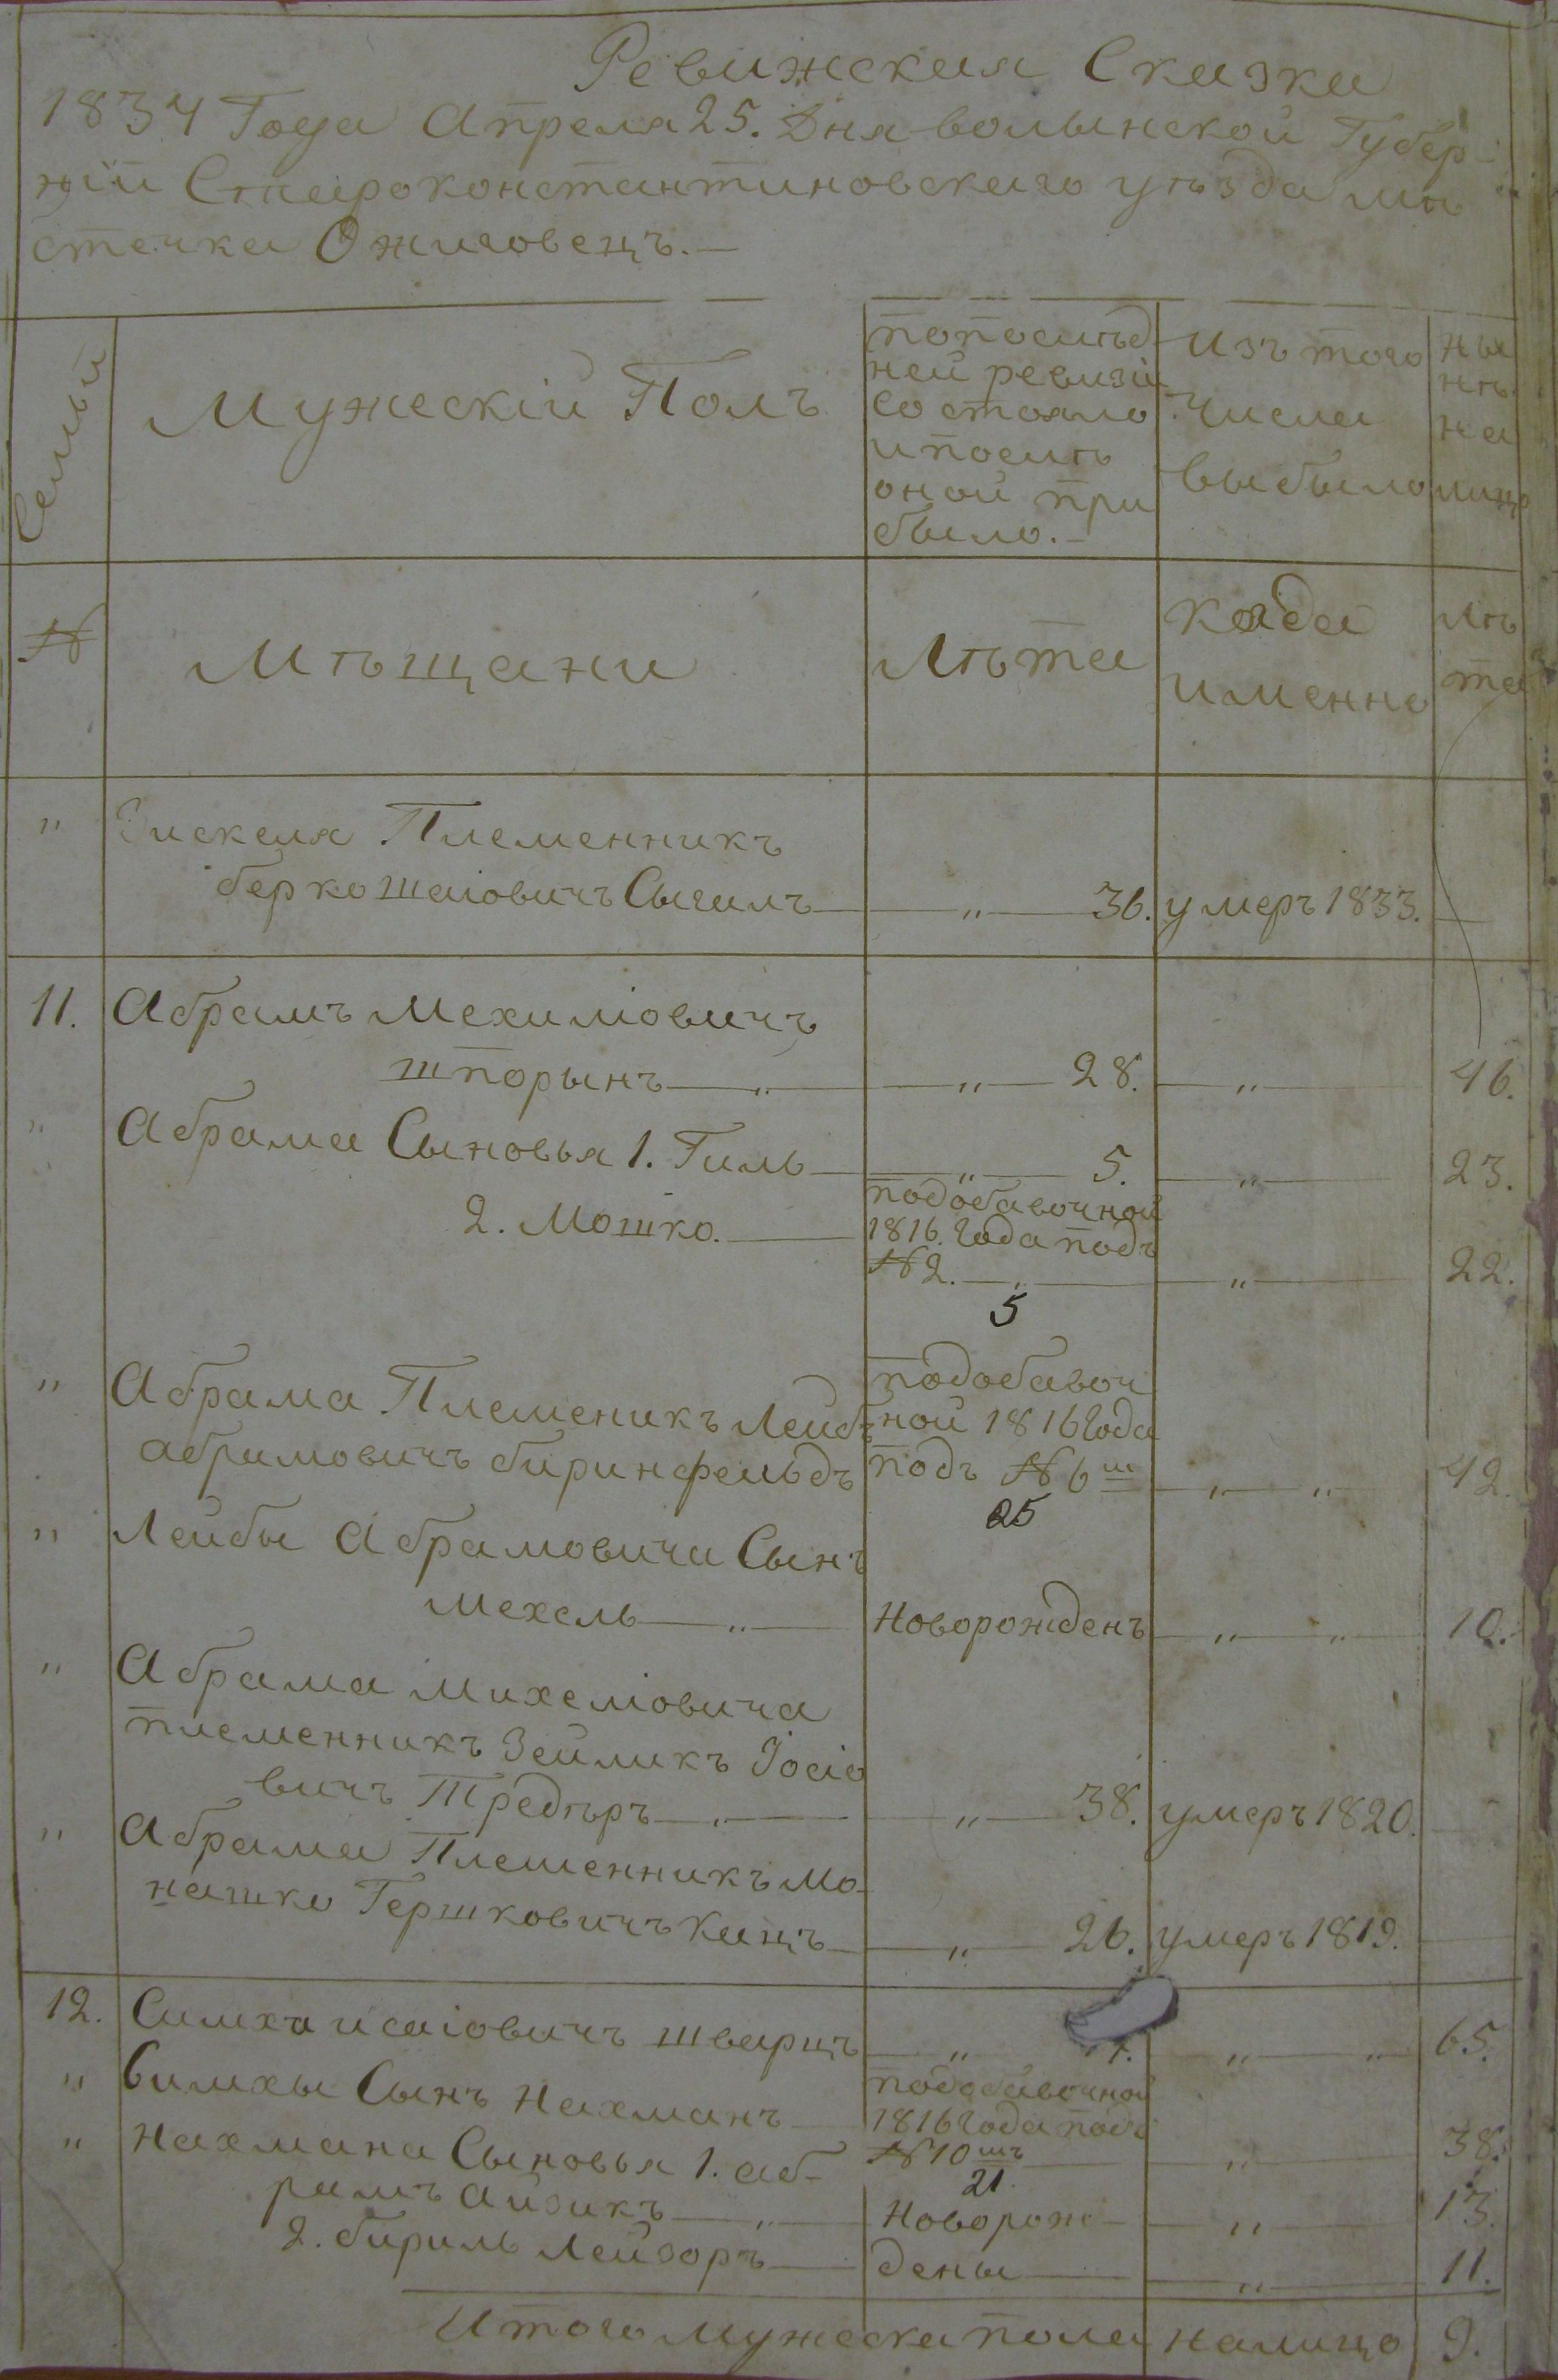 Ревижская Сказка
1834 Года Апреля 25. Дня волынской Губер-
нïи Староконстантиновскаго уѣзда мѣ
стечка Ожиговецъ.—
Семьи
Мужескiй Полъ
попослѣд
ней ревизiи
состояло
и послѣ
оной при
было.—
изъ того
числа
выбыло
ны
нѣ
на
лицо
№
Мѣщани
Лѣта
когда
именно
лѣ
та
" Племенникъ
берко шаiовичъ — " — 36. умеръ 1833. —
11. Абрамъ Мехилiовичъ
шпорынъ — " — " — 28. — " — 46.
" Абрама Сыновья 1. Гиль — " — 5. — " — 23.
2. Мошко. — подобавочной
1816. Года подъ
№ 2. — " — " — 22.
5
" Абрама Племеникъ Лейбъ
абрамовичъ биринфельдъ
подобавоч
ной 1816 Года
подъ № 6 ш — " — " — 42.
25
" Лейбы Абрамовича Сынъ
мехель — " — Новорожденъ — " — " — 10.
" Абрама Михелiовича
племенникъ Зейликъ Iосiо
вичъ Тредѣръ — " — " — 38. умеръ 1820. —
" Абрама Племенникъ Мо-
нашко Гершковичъ Кацъ — " — 26. умеръ 1819. —
12. Симха исаiовичъ шварцъ — " — " — " — 65.
" Симхы Сынъ Нахманъ — подобавочной
1816 Года подъ
№ 10 шъ — " — 38.
21.
" Нахмана Сыновья 1. аб-
рамъ айзикъ — " — Новорож- — " — 13.
2. бириль Лейзоръ — дены — " — 11.
Итого мужеска пола налицо 9.